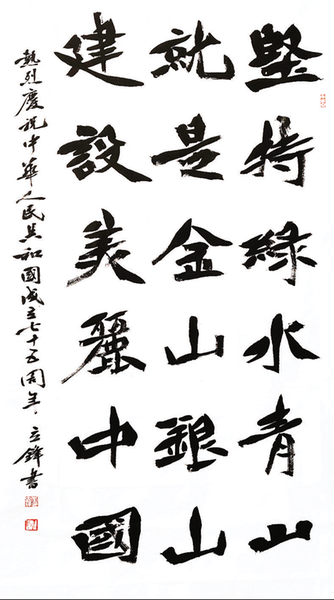 堅持綠水青山
就是金山銀山
建設美麗中國
熱烈慶祝中華人民共和國成立七十五周年 立鋒書